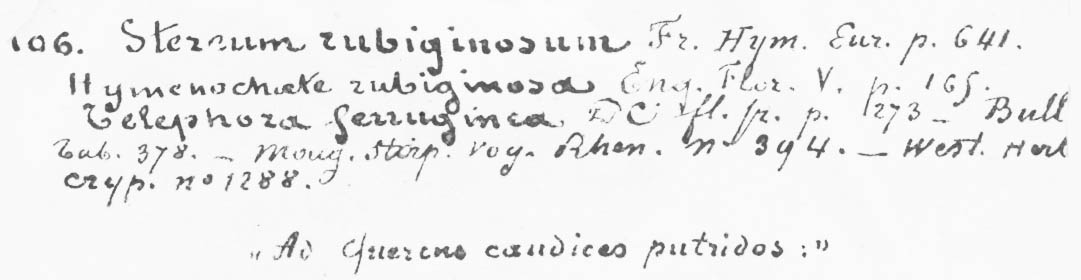 106. Stereum rubiginosum Fr. Hym. Eur. p. 641.
Hymenochæte rubiginosa Eng. Flor. V. p. 165.
Telephora ferruginea DC fl. fr. p. 1273 _ Bull
tab. 378. _ Moug. Stirp. Vog. Rhen. no 394. _ West. Herb
cryp. no 1288.
„Ad Quercus caudices putridos:”